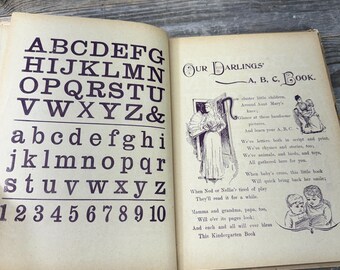 ABCDEFG
HIJKLMN
OPQRSTU
VWXYZ&
abcdefghi
jklmnopqr
stuvwxyz
12345678910
OUR DARLINGS'
A, B, C, BOOK.
little children,
Around Aunt Mary's
at these handsome
pictures,
And learn your A, B, C.
We've letters, both in script and print,
We've rhymes and stories, too,
We've animals and birds, and toys,
All gathered here for you.
When baby's cross, this little book
Will quickly bring back smile;
When Ned or Nellie's tired of play
They'll read it for a while.
Mamma and grandma, papa, too,
Will its pages look;
And each and all will ever bless
This Kindergarten Book